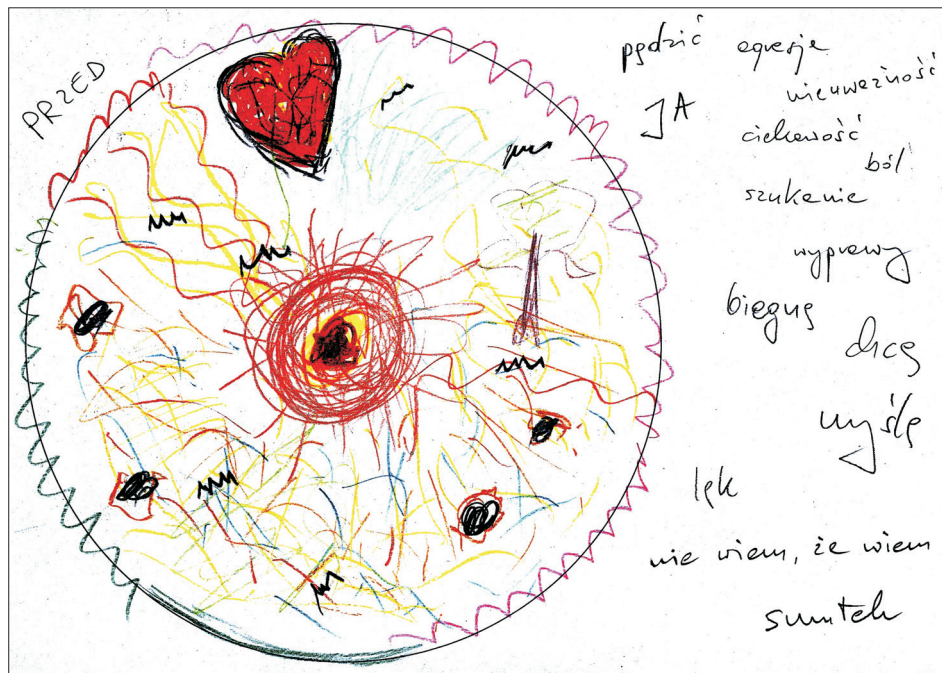 PRZED
pędzić agresja
nieuważność
JA
ciekawość
ból
szukanie
wyprawy
biegnę
chcę
myślę
lęk
nie wiem, że wiem
smutek